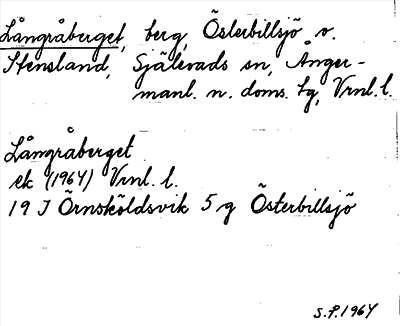 Långråberget, berg, Österbillsjö v.
Stensland, Själevads sn, Ånger-
manl. n. doms. tg, Vrnl. l.
Långråberget
ek (1964) Vrnl. l.
19 J Örnsköldsvik 5 g Österbillsjö
S.P. 1964